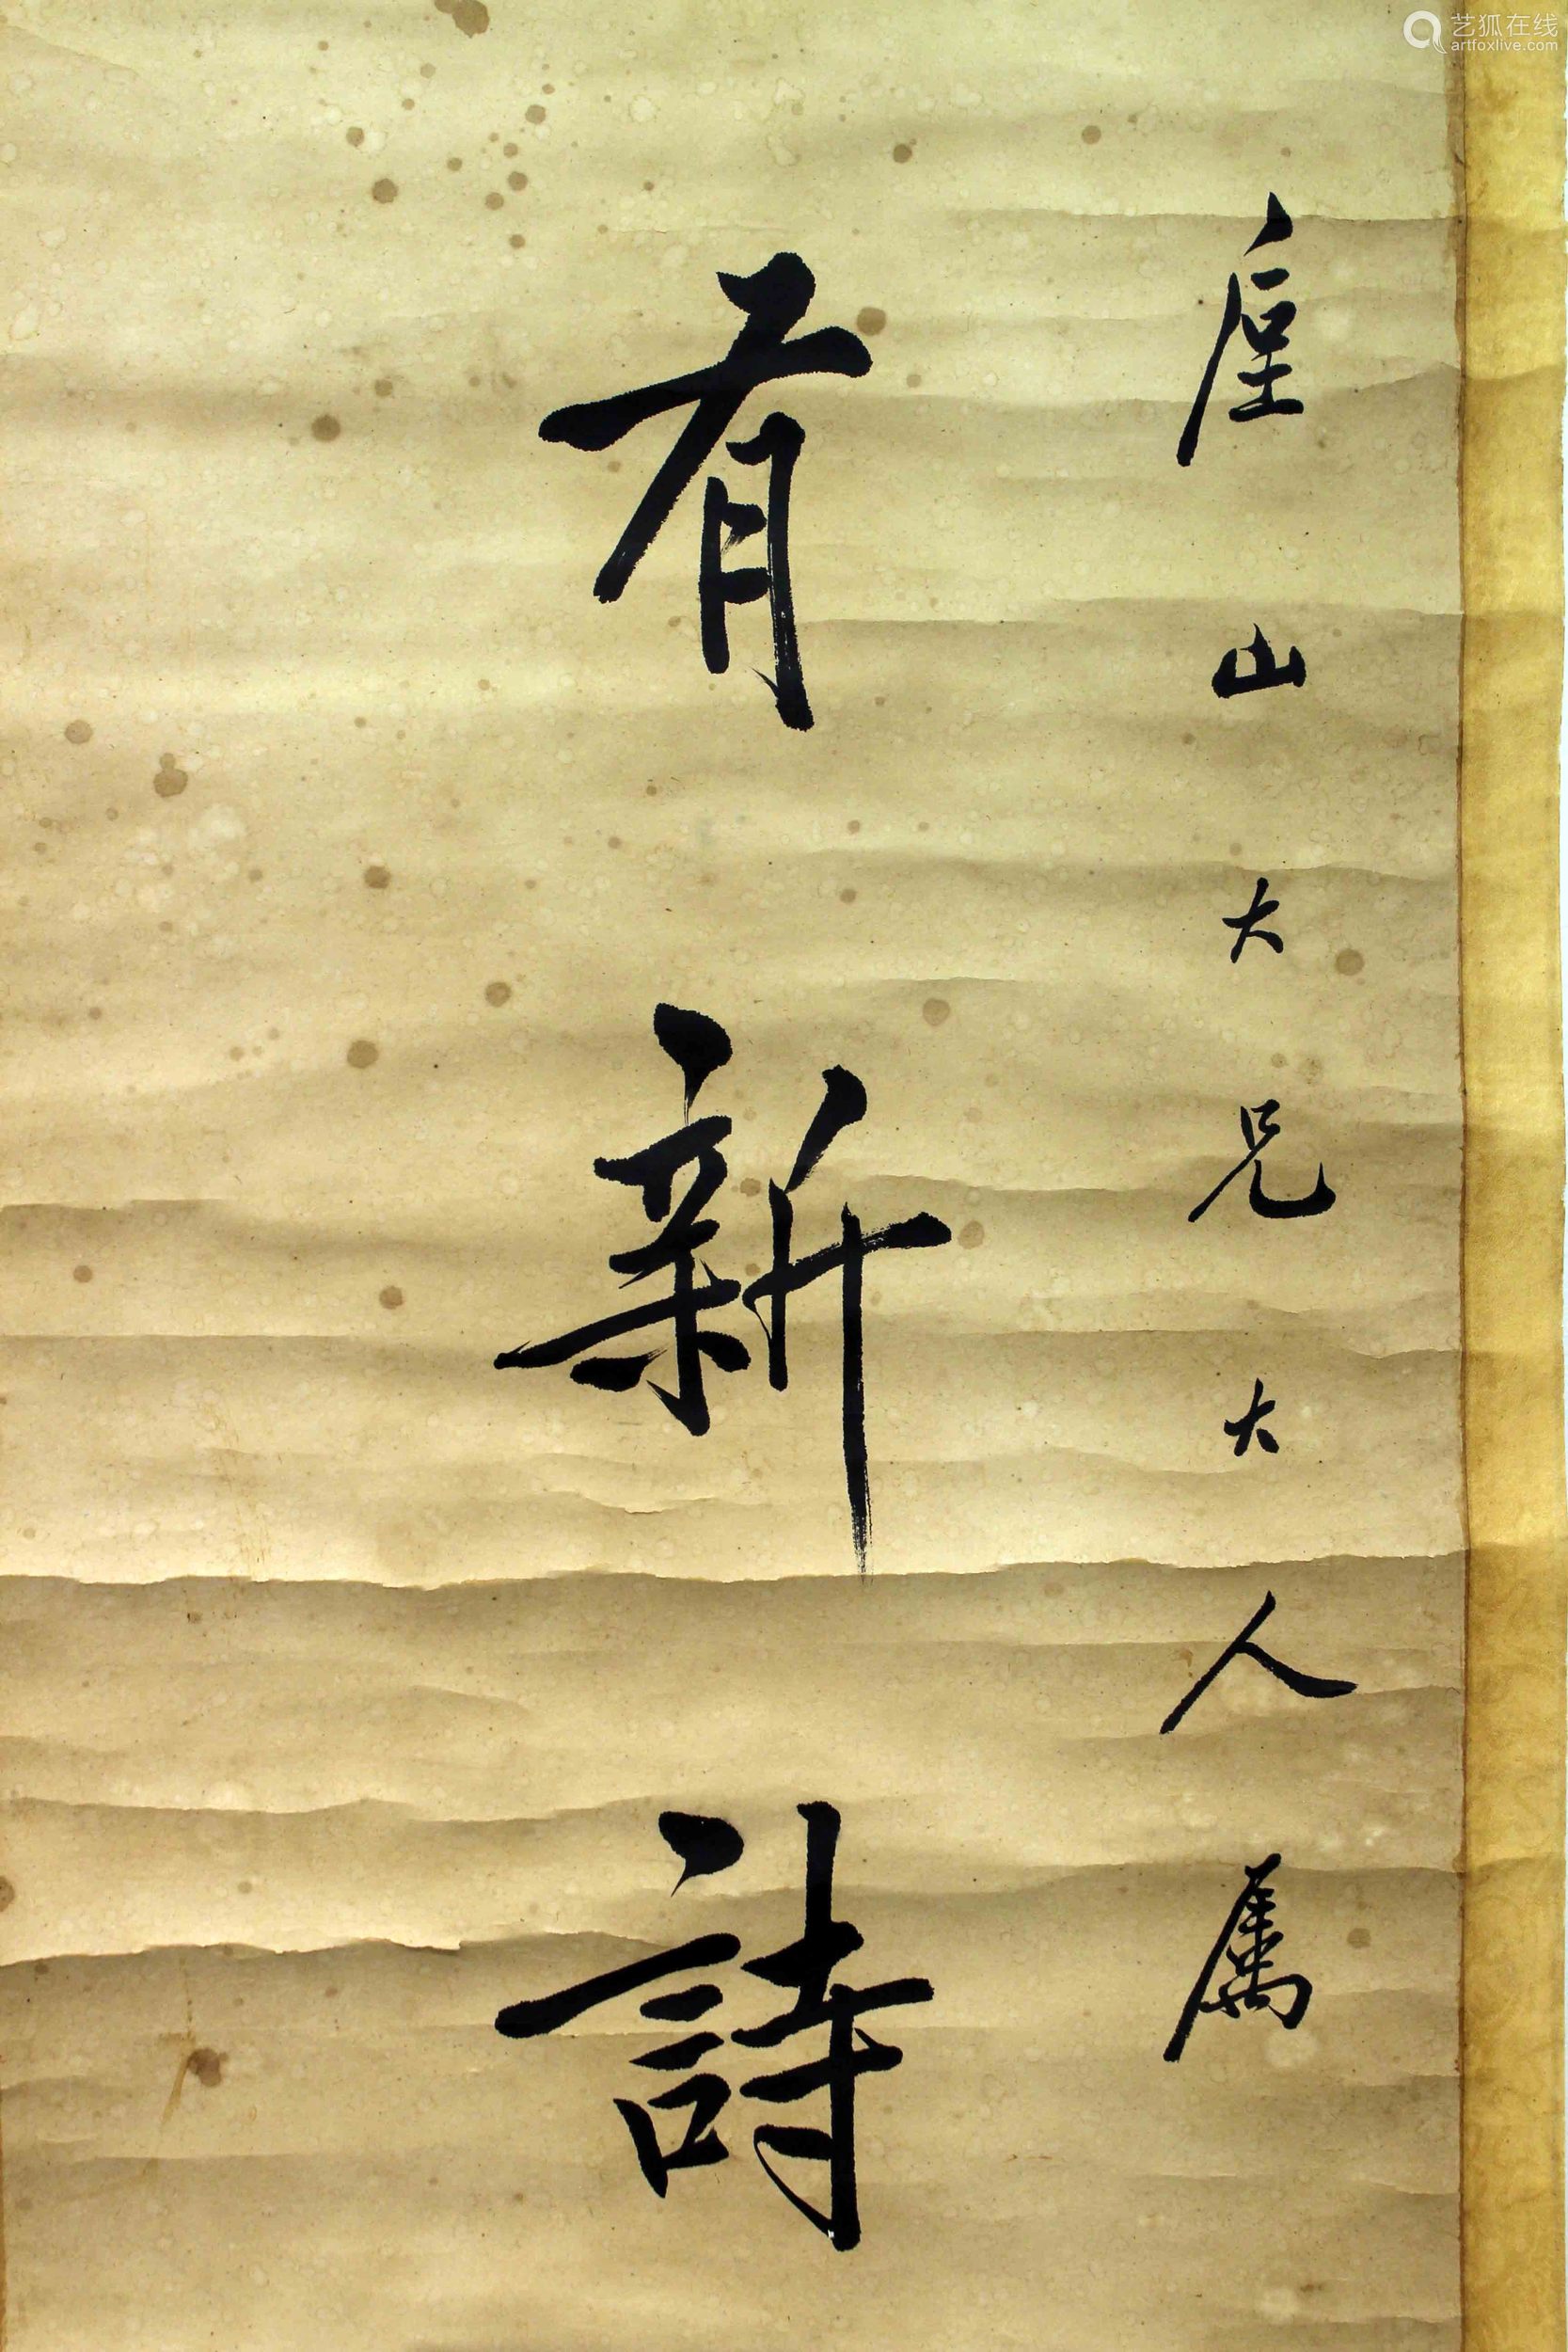 垕山大兄大人属
有新詩
艺狐在线
artfoxlive.com